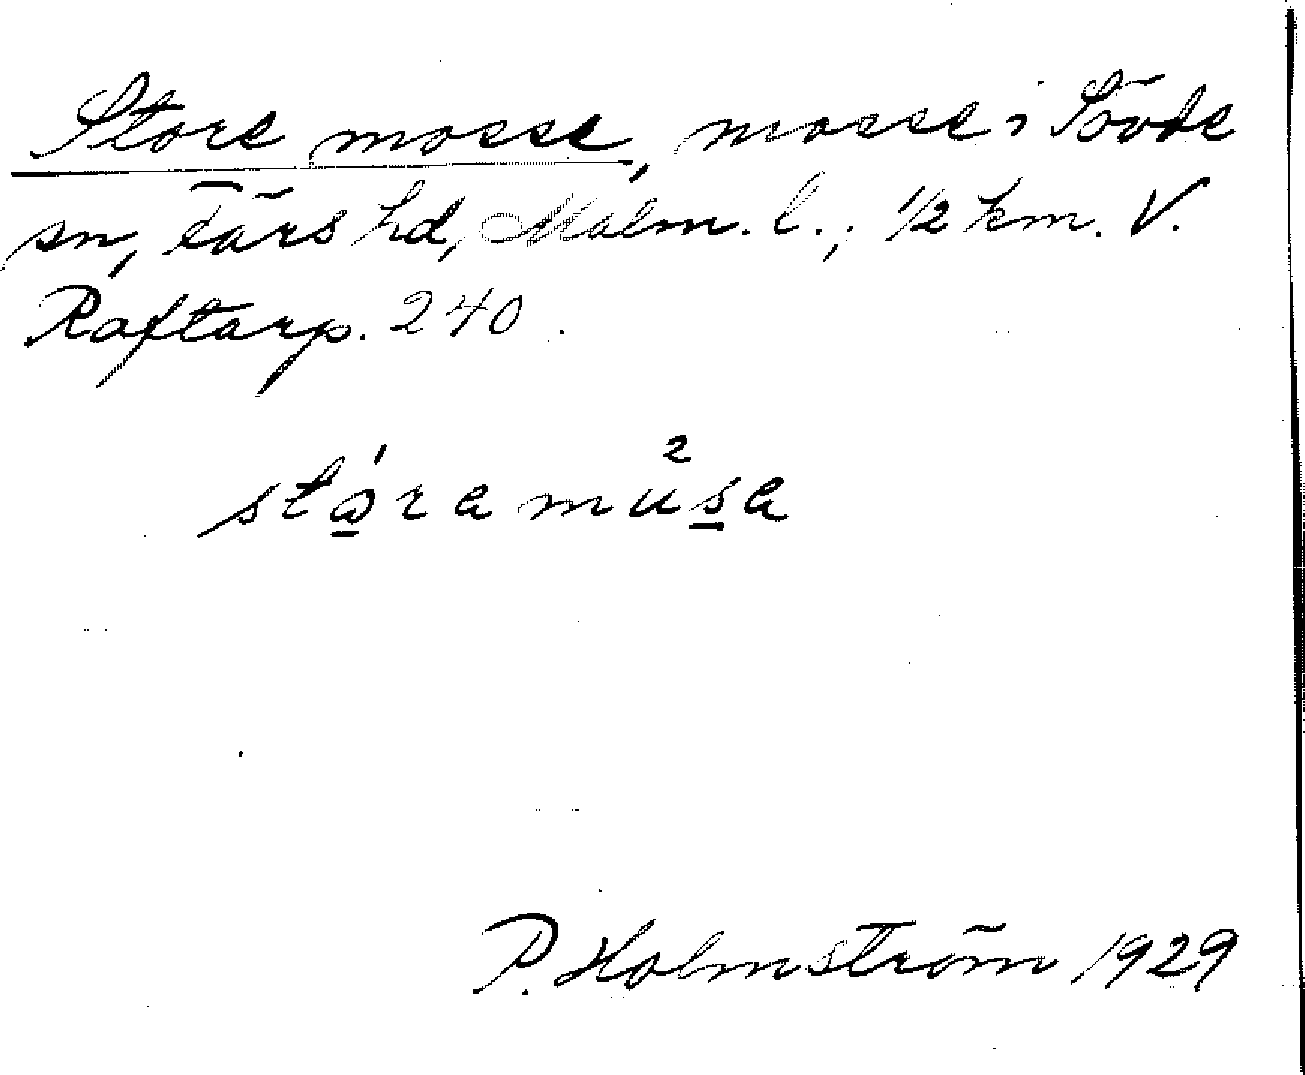 Store mosse, mosse i Sövde
sn, Färs hd, Malm. l., 1/2 km. V.
Raftarp. 240.
stǫ́ra mu²s̲a
P. Holmström 1929